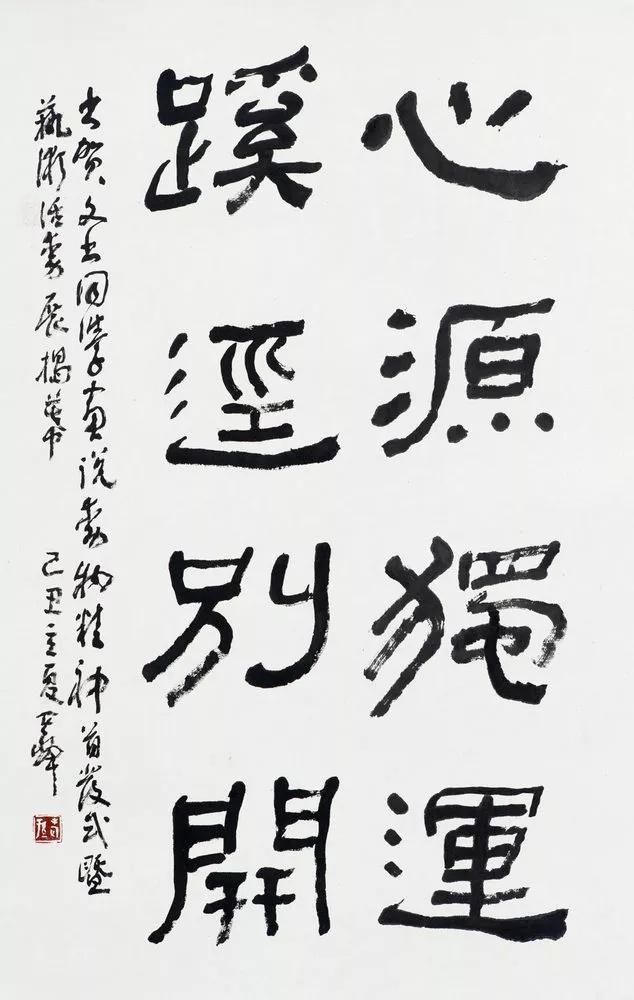 心源獨運
蹊逕別開
書賀文書同學畫說動物精神首發式暨
藝術活動展揭幕
己丑立夏